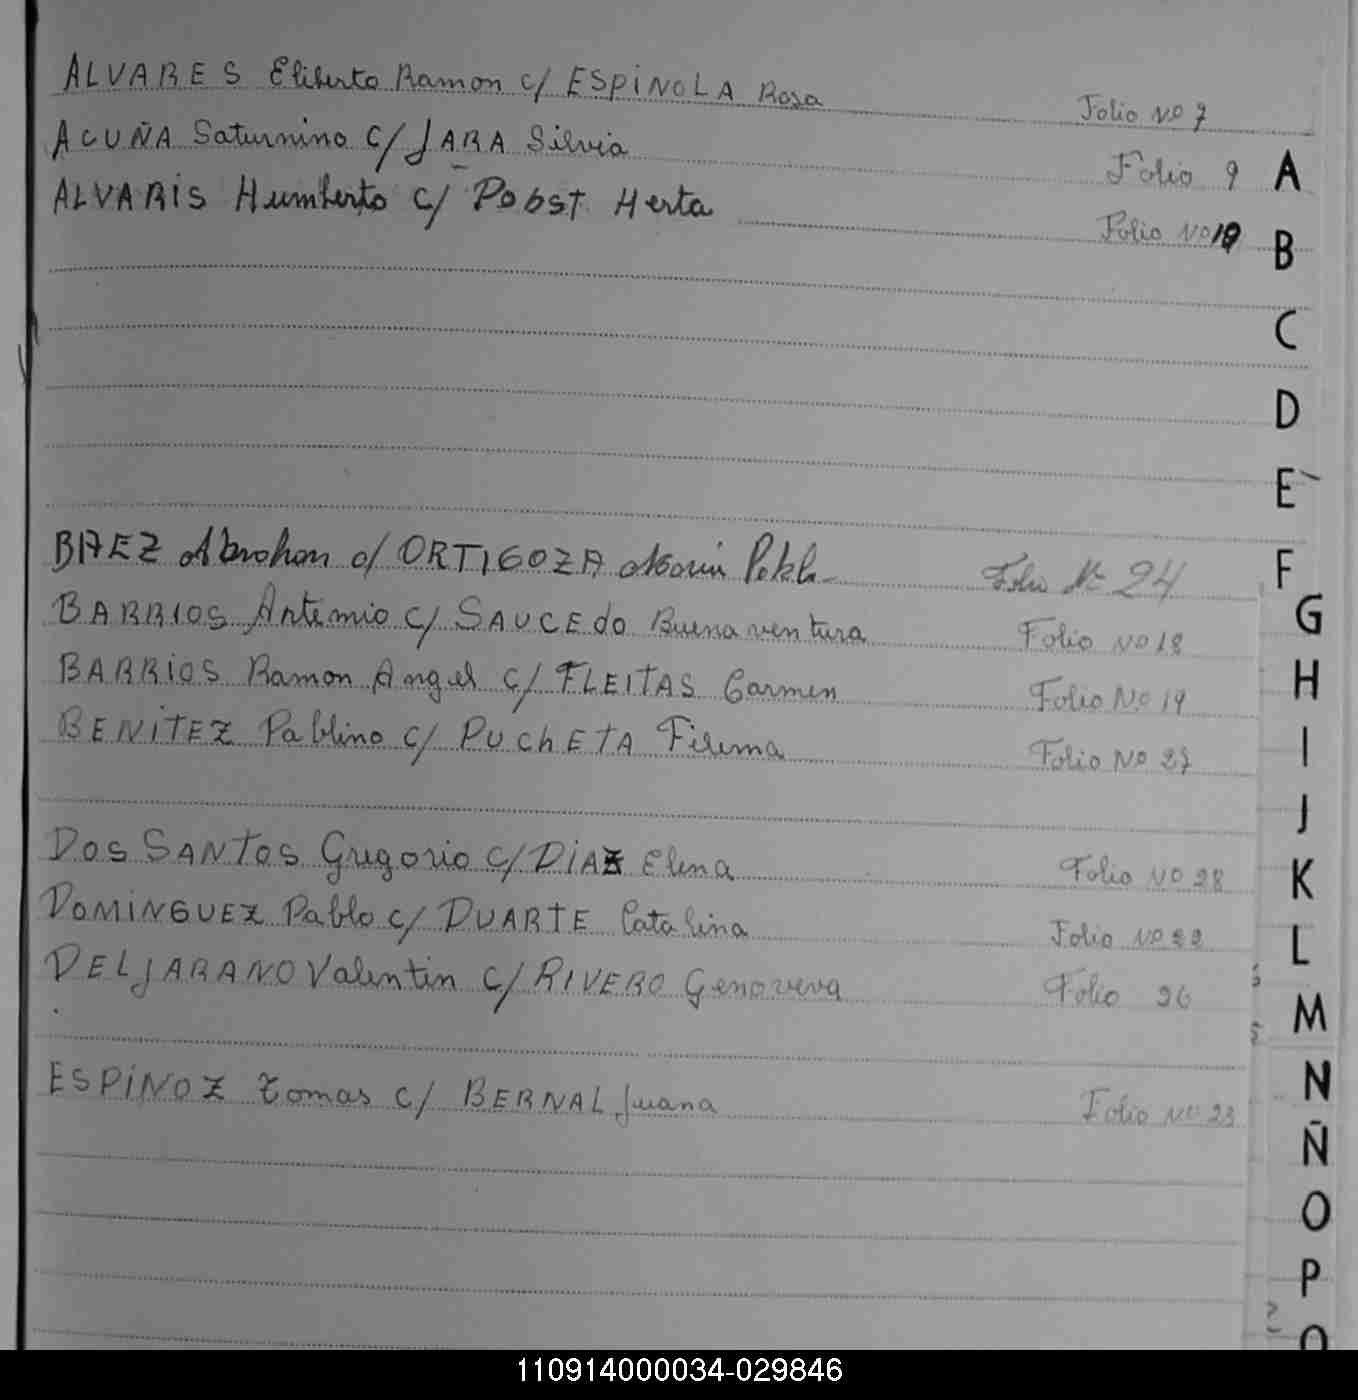 ALVARES Eliberto Ramon c/ ESPINOLA Rosa Folio No 7
ACUÑA Saturnino C/ JARA Silvia Folio 9
ALVARIS Humberto c/ Pobst Herta Folio No
BAEZ Abrahan c/ ORTIGOZA Maria Folio No 24
BARRIOS Artemio c/ SAUCEdo Buenaventura Folio No 18
BARRIOS Ramon Angel c/ FLEITAS Carmen Folio No 19
BENITEZ Pablino c/ PUChETA Filema Folio No 27
DOS SANTOS Gregorio c/ DIAZ Elena Folio No 28
DOMINGUEZ Pablo c/ DUARTE Catalina Folio No 22
DELJARANO Valentin c/ RIVERO Genoveva Folio 26
ESPINOZ Tomas c/ BERNAL Juana Folio No 23
A
B
C
D
E
F
G
H
I
J
K
L
M
N
Ñ
O
P
110914000034-029846